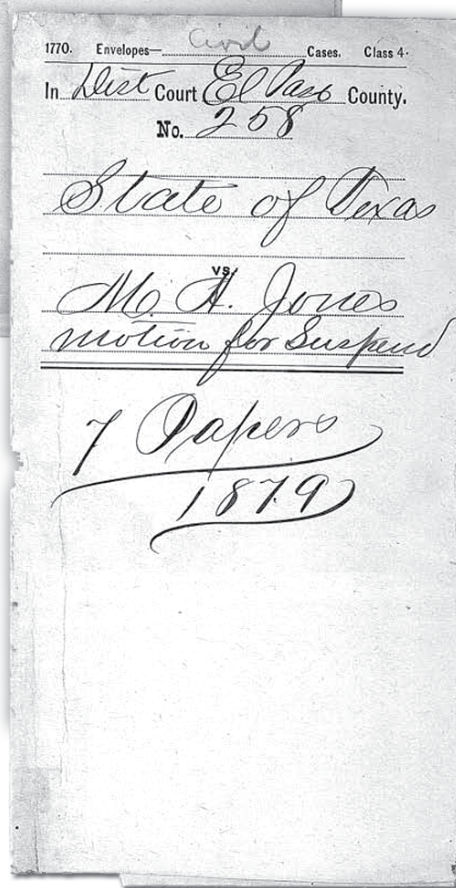 1770. Envelopes— Civil Cases. Class 4.
In Dist Court El Paso County.
No. 258
State of Texas
vs.
M. A. Jones
motion for Suspend
7 Papers
1879